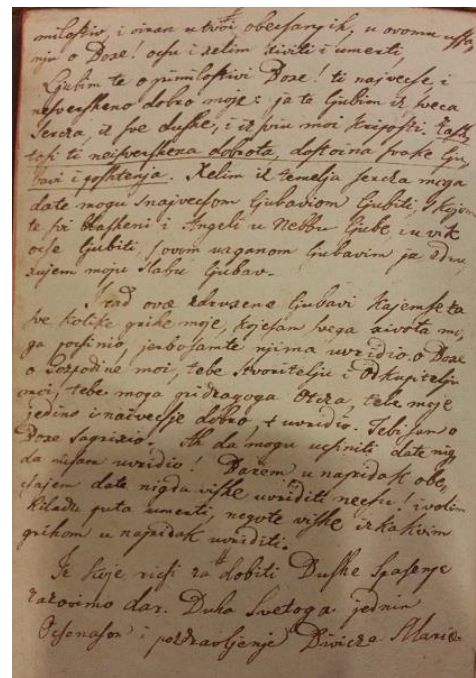 milostiv, i viran u tvoi obecsanjih, u ovomu uffa,
nju o Boxe! ocsu i xelim xiviti i umerti,
Ljubim te o primilostivi Boxe! ti najvecse, i
neisversheno dobro moje: ja te ljubim iz svega
Serdza, iz sve dushe, i iz sviu moi kriposti. Zasto
tosi ti neisvershena dobrota, dostoina svake lju,
bavi i poshtenja. Xelim iz temelja serdza moga
date mogu snajvecsom ljubaviom ljubiti, s kojom
te svi blaxeni i Angeli u Nebbu ljube i u vik
ocse ljubiti, s ovim ljubavim ja zdru,
xujem moju slabu ljubav.
I rad ove zdruxene ljubavi kajemse za
sve kolike grihe moje, kojesam svega xivota mo,
ga jerbosamte njima uvridio o Boxe
o Gospodine moi, tebe Stvoritelju i Odkupitelju
moi, tebe moga pridragoga Otza, tebe moje
jedino i najvecse dobro, uvridio. Tebi sam o
Boxe sagrixio! Ah da mogu ucsiniti date nig,
da nisam uvridio! Barem u napridak obe,
sajem date nigda vishe uvriditi necsu! i volim
hiladu puta umerti, negote vishe izkakvim
grihom u napridak uvriditi.
Iz koje za dobiti Dushe Spasenje
zazovimo dar. Duha Svetoga jednim
Ocsenasom i pozdravljenje Divicze Marie